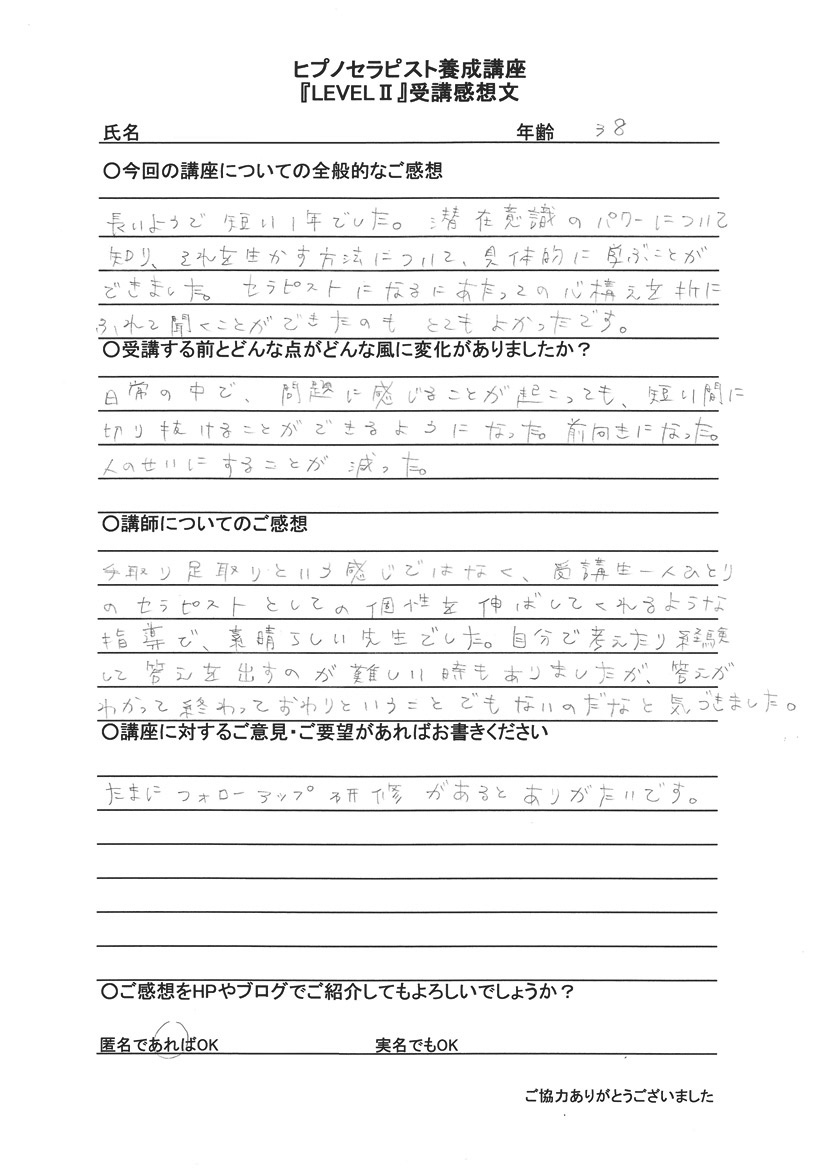 ヒプノセラピスト養成講座
『LEVELⅡ』受講感想文
氏名 年齢 38
〇今回の講座についての全般的なご感想
長いようで短い1年でした。潜在意識のパワーについて
知り、それを生かす方法について、具体的に学ぶことが
できました。セラピストになるにあたっての心構えを折に
ふれて聞くことができたのもとてもよかったです。
〇受講する前とどんな点がどんな風に変化がありましたか？
日常の中で、問題に感じることが起こっても、短い間に
切り抜けることができるようになった。前向きになった。
人のせいにすることが減った。
〇講師についてのご感想
手取り足取りという感じではなく、受講生一人ひとり
のセラピストとしての個性を伸ばしてくれるような
指導で、素晴らしい先生でした。自分で考えたり経験
して答えを出すのが難しい時もありましたが、答えが
わかって終わっておわりということでもないのだなと気づきました。
〇講座に対するご意見・ご要望があればお書きください
たまにフォローアップ研修があるとありがたいです。
〇ご感想をHPやブログでご紹介してもよろしいでしょうか？
匿名であればOK 実名でもOK
ご協力ありがとうございました